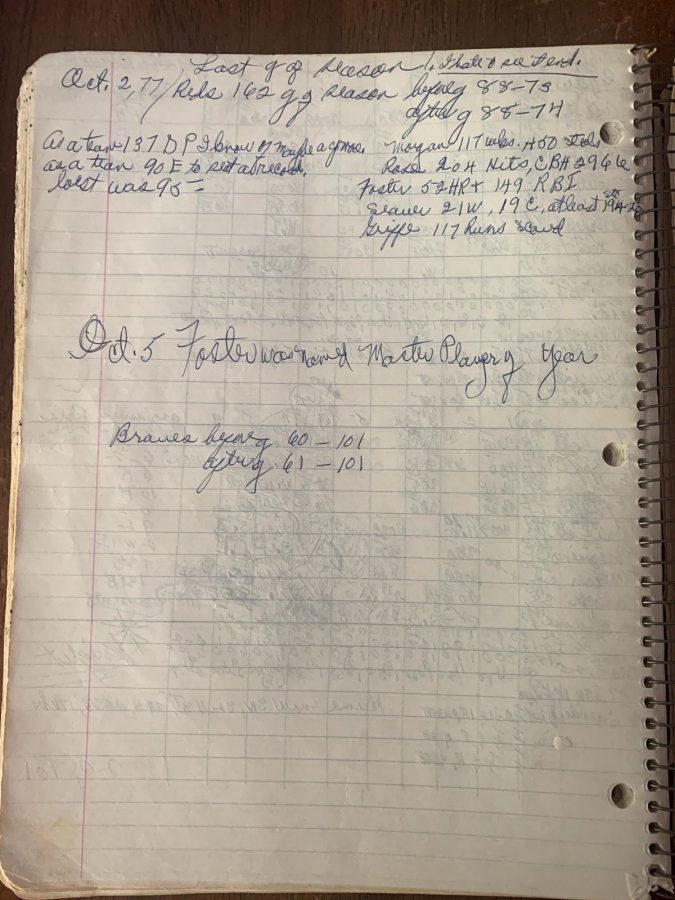 Last g of season! I hate to see it end.
Oct. 2, 77 / Reds 162 g of season before g 88-73
after g 88-74
As a team 137 DP I know of maybe a g more.
as a team 90 E to set a record,
lowest was 95 -
Morgan 117 wks.
Rose 204 Hits, CBH 2966
Foster 52 HR + 149 RBI
Seaver 21 W, 19 C, at least
Griffe 117 Runs Scored
Oct. 5 Foster was named Master Player of Year
Braves before g 60 - 101
after g 61 - 101